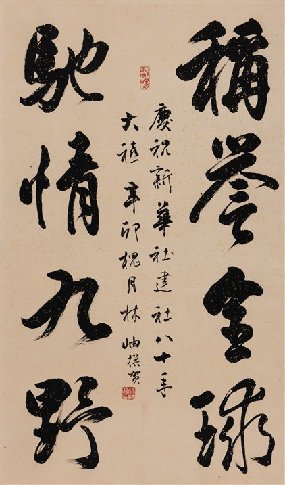 稱譽全球
慶祝新華社建社八十年
大禧 辛卯槐月林岫撰賀
馳情九野